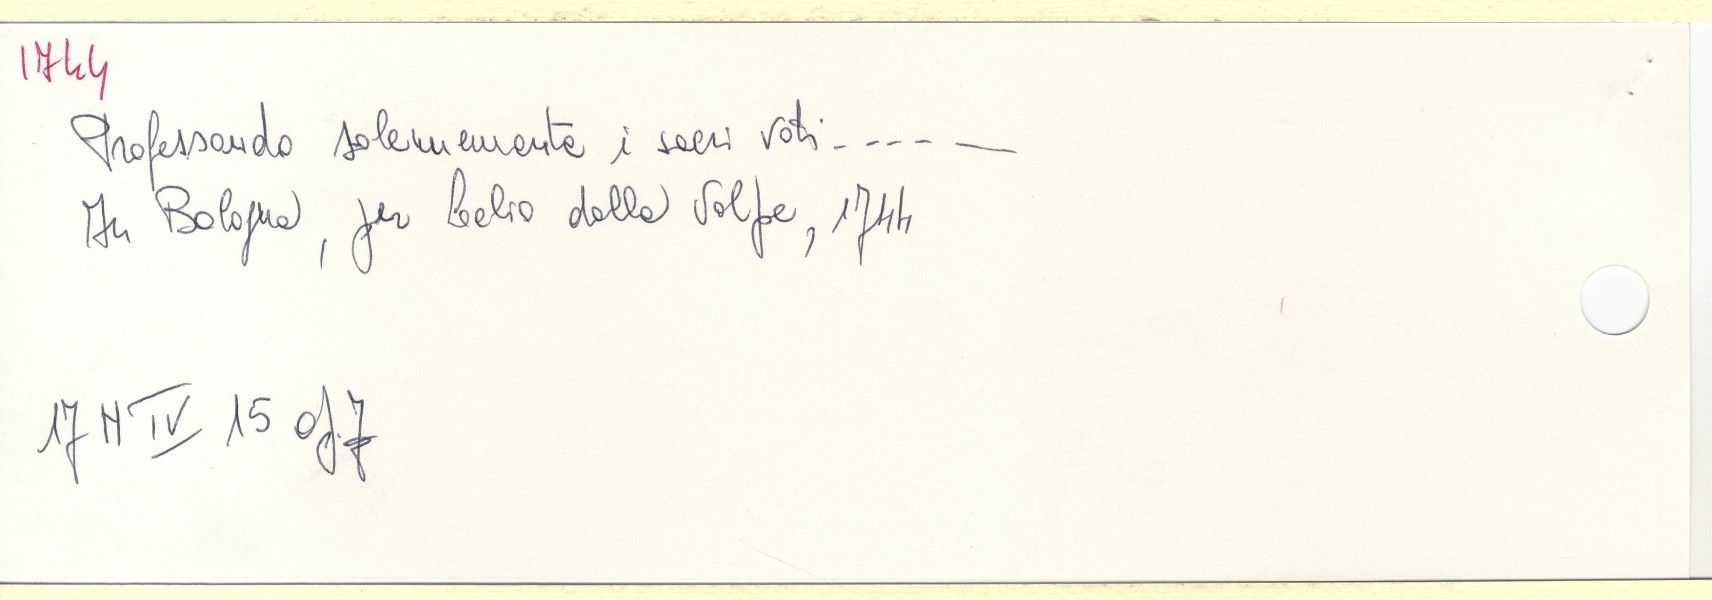 1744
Professando solennemente i sacri voti ----- —
In Bologna, per Lelio dalla Volpe, 1744
17 H IV 15 op. 7